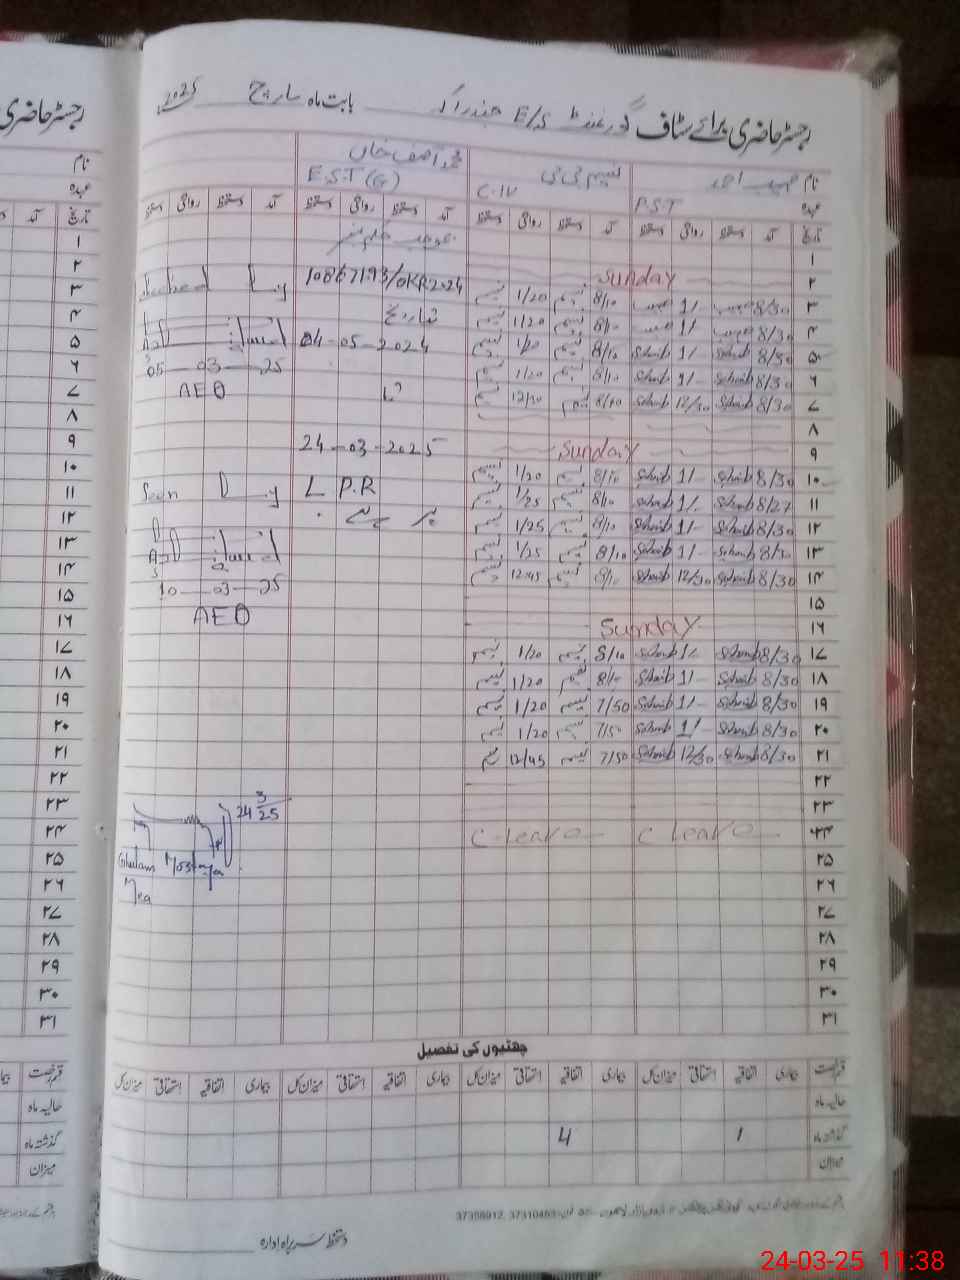 رجسٹر حاضری برائے سٹاف گورنمنٹ E/S بابت ماہ مارچ 2025
نام
محمد آصف خاں نسیم بی بی
عہدہ
E.S.T (G) C.IV P.S.T
تاریخ آمد دستخط روانگی دستخط آمد دستخط روانگی دستخط آمد دستخط روانگی دستخط
۱
۲ Sunday
108671.93/OKR2024
۳ 8/30 1/ 8/10 نسیم 1/20 نسیم
۴ 8/30 1/ 8/10 نسیم 1/20 نسیم
تاریخ
۵ 8/30 Sohaib 1/ Sohaib 8/10 نسیم 1/20 نسیم
04-05-2024
۶ 8/30 Sohaib 1/ Sohaib 8/10 نسیم 1/20 نسیم
05-03-25
۷ 8/30 Sohaib 12/30 Sohaib 8/10 نسیم 12/30 نسیم
تا
AEO
۸
۹ Sunday
24-03-2025
۱۰ 8/30 Sohaib 1/- Sohaib 8/10 نسیم 1/20 نسیم
۱۱ 8/27 Sohaib 1/- Sohaib 8/10 نسیم 1/25 نسیم
L.P.R
Seen
۱۲ 8/30 Sohaib 1/- Sohaib 8/10 نسیم 1/25 نسیم
پر ہے
۱۳ 8/30 Sohaib 1/- Sohaib 8/10 نسیم 1/25 نسیم
۱۴ 8/30 Sohaib 12/30 Sohaib 8/10 نسیم 12:45 نسیم
10-03-25
۱۵
AEO
۱۶ Sunday
۱۷ 8/30 Sohaib 1/- Sohaib 8/10 نسیم 1/20 نسیم
۱۸ 8/30 Sohaib 1/- Sohaib 8/10 نسیم 1/20 نسیم
۱۹ 8/30 Sohaib 1/- Sohaib 7/50 نسیم 1/20 نسیم
۲۰ 8/30 Sohaib 1/- Sohaib 7/50 نسیم 1/20 نسیم
۲۱ 8/30 Sohaib 12/30 Sohaib 7/50 نسیم 12/45 نسیم
۲۲
۲۳
24 3/25
۲۴ C leave C-leave
۲۵
Ghulam
۲۶
Mea
۲۷
۲۸
۲۹
۳۰
۳۱
چھٹیوں کی تفصیل
قسم رخصت بیماری اتفاقیہ استحقاقی میزان کل بیماری اتفاقیہ استحقاقی میزان کل بیماری اتفاقیہ استحقاقی میزان کل
حالیہ ماہ
گذشتہ ماہ 1 4
میزان
37310463، 37358912
دستخط سربراہ ادارہ
رجسٹر حاضری
نام
عہدہ
تاریخ آمد
۱
۲
۳
۴
۵
۶
۷
۸
۹
۱۰
۱۱
۱۲
۱۳
۱۴
۱۵
۱۶
۱۷
۱۸
۱۹
۲۰
۲۱
۲۲
۲۳
۲۴
۲۵
۲۶
۲۷
۲۸
۲۹
۳۰
۳۱
قسم رخصت
حالیہ ماہ
گذشتہ ماہ
میزان
24-03-25 11:38